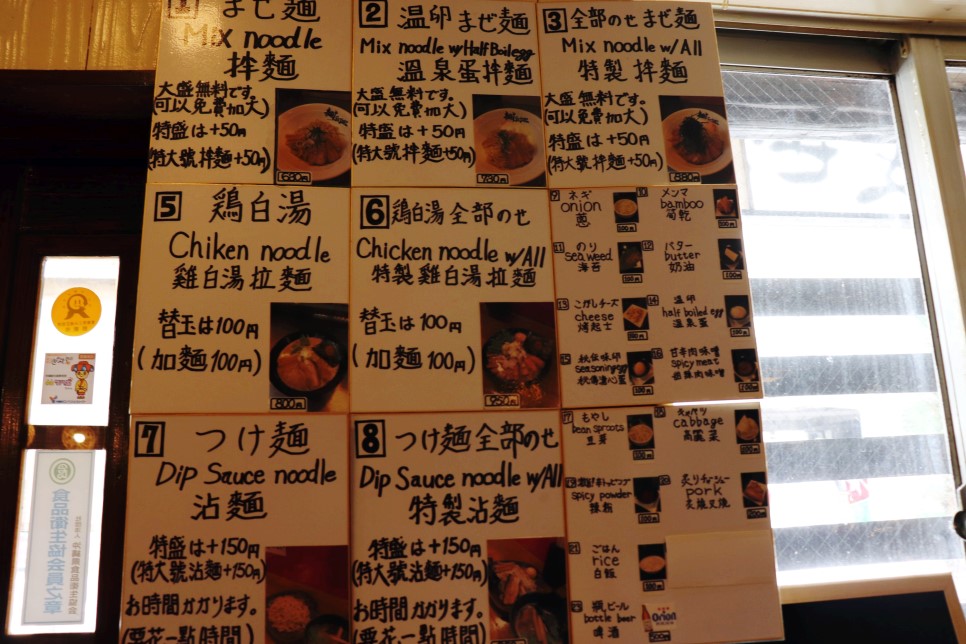 1 まぜ麺
Mix noodle
拌麵
大盛無料です。
(可以免費加大)
特盛は+50円
(特大號拌麵+50円)
680円
2 温卵まぜ麺
Mix noodle w/Half Boil egg
溫泉蛋拌麵
大盛無料です。
(可以免費加大)
特盛は+50円
(特大號拌麵+50円)
780円
3 全部のせまぜ麺
Mix noodle w/All
特製拌麵
大盛無料です。
(可以免費加大)
特盛は+50円
(特大號拌麵+50円)
880円
5 鶏白湯
Chiken noodle
雞白湯拉麵
替玉は100円
(加麵100円)
800円
6 鶏白湯全部のせ
Chicken noodle w/All
特製雞白湯拉麵
替玉は100円
(加麵100円)
950円
7 つけ麺
Dip Sauce noodle
沾麵
特盛は+150円
(特大號沾麵+150円)
お時間かかります。
(要花一點時間)
8 つけ麺全部のせ
Dip Sauce noodle w/All
特製沾麵
特盛は+150円
(特大號沾麵+150円)
お時間かかります。
(要花一點時間)
9 ネギ
onion
蔥
100円
10 メンマ
bamboo
筍乾
100円
11 のり
seaweed
海苔
100円
12 バター
butter
奶油
100円
13 こがしチーズ
cheese
烤起士
14 温卵
half boiled egg
溫泉蛋
15 秘伝味卵
seasoning egg
16 甘辛肉味噌
spicy meat
17 もやし
bean sprouts
豆芽
cabbage
高麗菜
spicy powder
辣粉
炙りチャーシュー
pork
炙燒叉燒
21 ごはん
rice
白飯
瓶ビール
bottle beer
啤酒
Orion
500円
食品衛生協会会員之章